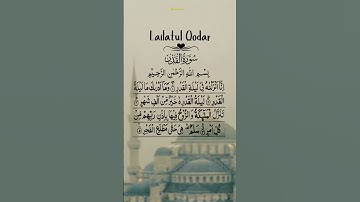 Lailatul Qodar
سُورَةُ الْقَدْرِ
بِسْمِ اللّٰهِ الرَّحْمٰنِ الرَّحِيْمِ
اِنَّآ اَنْزَلْنٰهُ فِيْ لَيْلَةِ الْقَدْرِ ۝ وَمَآ اَدْرٰىكَ مَا لَيْلَةُ
الْقَدْرِ ۝ لَيْلَةُ الْقَدْرِ ەۙ خَيْرٌ مِّنْ اَلْفِ شَهْرٍ ۝
تَنَزَّلُ الْمَلٰۤىِٕكَةُ وَالرُّوْحُ فِيْهَا بِاِذْنِ رَبِّهِمْ مِنْ
كُلِّ اَمْرٍ ۝ سَلٰمٌ ۛ هِيَ حَتّٰى مَطْلَعِ الْفَجْرِ ۝